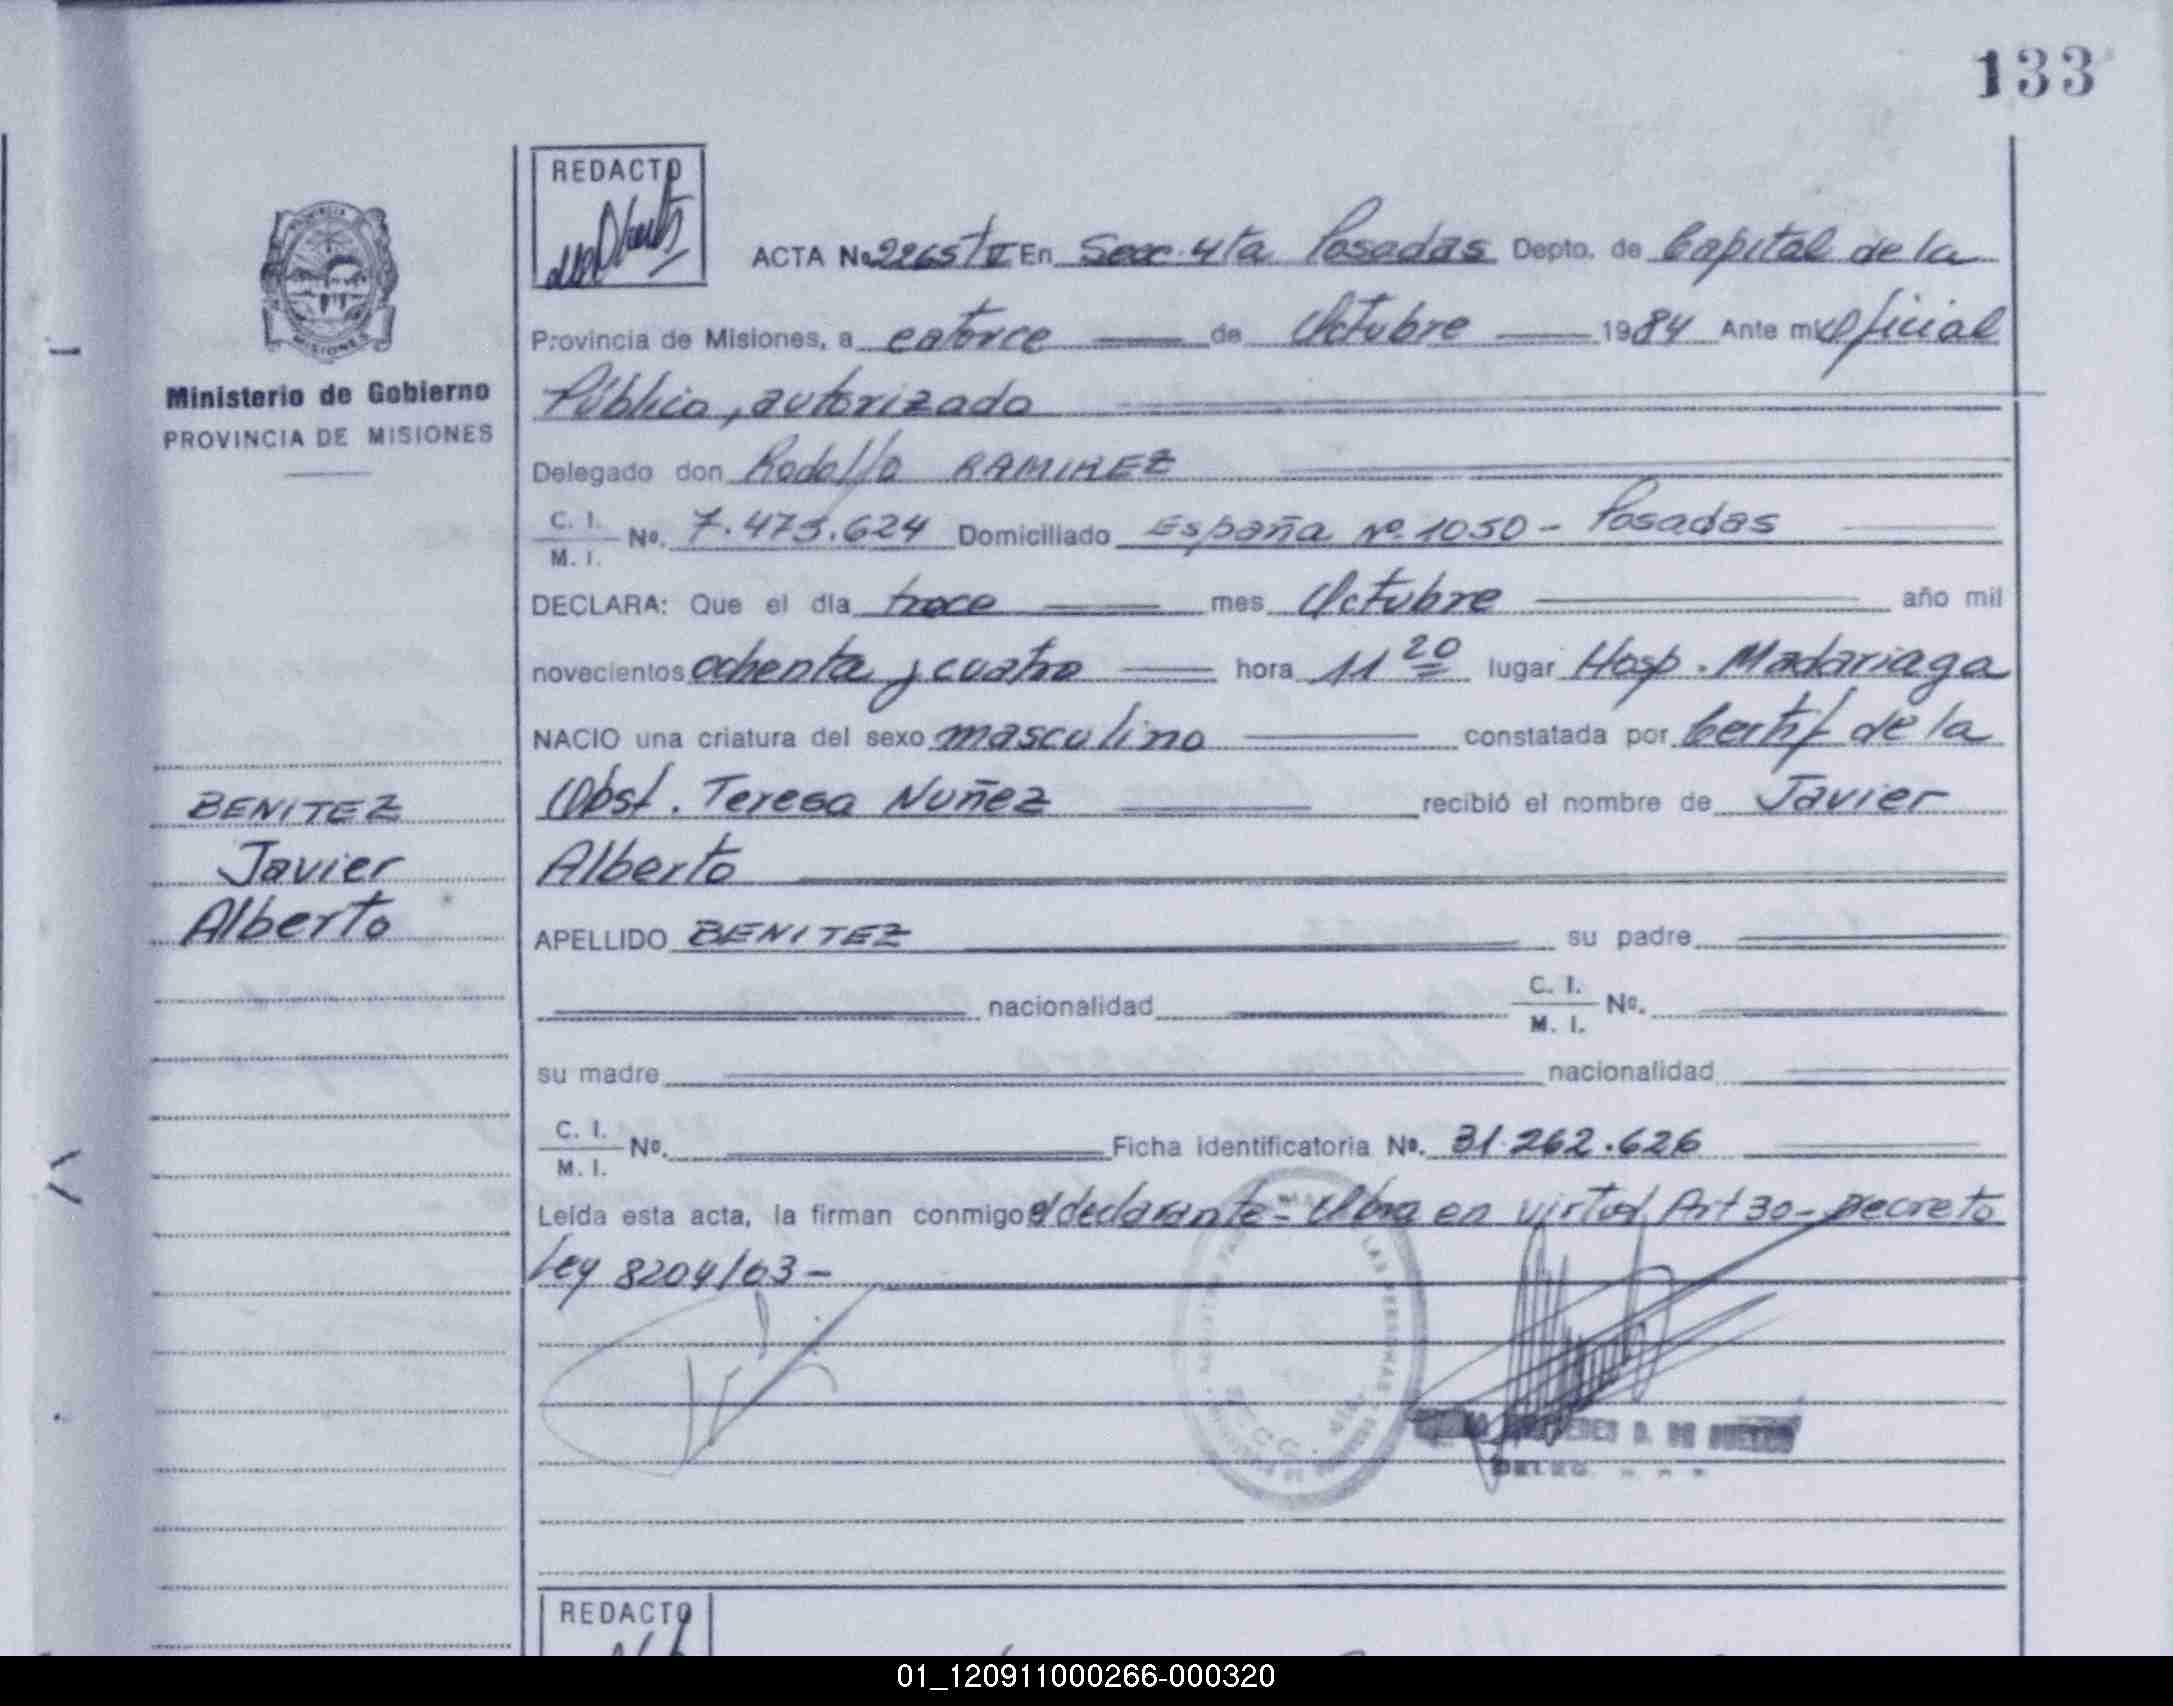 133
REDACTO
ACTA No 2265/V En Secc. 4ta Posadas Depto. de Capital de la
PROVINCIA
MISIONES
Provincia de Misiones, a catorce de Octubre 1984 Ante mi Oficial
Ministerio de Gobierno
PROVINCIA DE MISIONES
Público, autorizado
Delegado don Rodolfo RAMIREZ
C. I.
M. I.
No. 7.475.624 Domiciliado España Nº 1050 - Posadas
DECLARA: Que el día trece mes Octubre año mil
novecientos ochenta y cuatro hora 11 20 lugar Hosp. Madariaga
NACIO una criatura del sexo masculino constatada por Certif de la
Obst. Teresa Nuñez recibió el nombre de Javier
Alberto
BENITEZ
Javier
Alberto
APELLIDO BENITEZ su padre
nacionalidad C. I.
M. I. No.
su madre nacionalidad
C. I.
M. I. No. Ficha identificatoria No. 31.262.626
Leída esta acta, la firman conmigo el declarante - Obra en virtud Art 30 - Decreto
Ley 8204/63 -
LAS PERSONAS
REDACTO
01_120911000266-000320